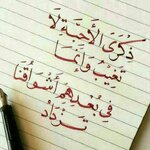 ذكرى الأحبة لا
تغيب وإنما
في بعدهم أشواقنا
تزداد